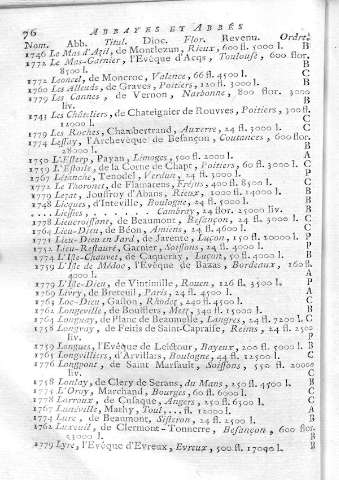 76 ABBAYES ET ABBÉS
Nom. Abb. Titul. Dioc. Flor. Revenu. Ordre.
1746 Le Mas d'Azil, de Montlezun, Rieux, 600 fl. 5000 l. B
1772 Le Mas-Garnier, l'Evêque d'Acqs, Toulouse, 600 flor.
8500 l. B
1772 Leoncel, de Moncroc, Valence, 66 fl. 4500 l. C
1760 Les Alleuds, de Graves, Poitiers, 120 fl. 3000 l. B
1779 Les Cannes, de Vernon, Narbonne, 800 flor. 3000
l. B
1741 Les Châteliers, de Chateigner de Rouvres, Poitiers, 300 fl.
12000 l. C
1779 Les Roches, Chambertraud, Auxerre, 24 fl. 3000 l. C
1774 Lessay, l'Archevêque de Besançon, Coutances, 600 flor.
28000 l. B
1750 L'Esterp, Payan, Limoges, 500 fl. 2000 l. A
1759 L'Estoile, de la Corne de Chapt, Poitiers, 60 fl. 3000 l. C
1767 Létanche, Tenodel, Verdun, 24 fl. 3000 l. P
1772 Le Thoronet, de Flamarens, Fréjus, 400 fl. 8500 l. C
1779 Lezat, Jouffroy d'Abans, Rieux, 3000 fl. 14000 l. B
1748 Licques, d'Inteville, Boulogne, 24 fl. 5000 l. P
.... Liessies, . . . . . Cambray, 24 flor. 25000 liv. B
1778 Lieucroissant, de Beaumont, Besançon, 24 fl. 3000 l. C
1764 Lieu-Dieu, de Béon, Amiens, 24 fl. 4600 l. C
1771 Lieu-Dieu en Jard, de Jarente, Luçon, 150 fl. 10000 l. P
1752 Lieu-Restauré, Garnier, Soissons, 24 fl. 4000 l. P
1774 L'Isle-Chauvet, de Caqueray, Luçon, 50 fl. 4000 l. B
1759 L'Isle de Médoc, l'Evêque de Bazas, Bordeaux, 160 fl.
4000 l. A
1779 L'Isle-Dieu, de Vintimille, Rouen, 126 fl. 3500 l. P
1769 Livry, de Breteuil, Paris, 24 fl. 4500 l. A
1763 Loc-Dieu, Gaston, Rhodez, 240 fl. 4500 l. C
1762 Longeville, de Bouffiers, Metz, 340 fl. 15000 l. B
1764 Longuay, de Planc de Beaumelle, Langres, 24 fl. 7200 l. C
1756 Longuay, de Feitis de Saint-Capraise, Reims, 24 fl. 2500
liv.
1759 Longues, l'Evêque de Leictour, Bayeux, 200 fl. 5000 l. B
1765 Longvilliers, d'Arvillars, Boulogne, 44 fl. 12500 l. C
1776 Longpont, de Saint Marsault, Soissons, 550 fl. 20000
liv. C
1758 Lonlay, de Clery de Serans, du Mans, 250 fl. 4500 l. B
1775 L'Oroy, Marchand, Bourges, 66 fl. 6000 l. C
1778 Larroux, de Cusaque, Angers, 250 fl. 6300 l. C
1767 Lunéville, Mathy, Toul.... fl. 12000 l. A
1774 Lure, de Beaumont, Sisteron, 24 fl. 2500 l. B
1762 Luxeuil, de Clermont-Tonnerre, Besançon, 600 flor.
23000 l. B
1779 Lyre, l'Evêque d'Evreux, Evreux, 500 fl. 17090 l. B